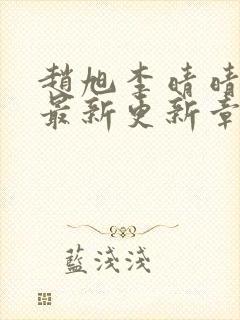 趙旭李晴晴
最新更新章
藍淺淺